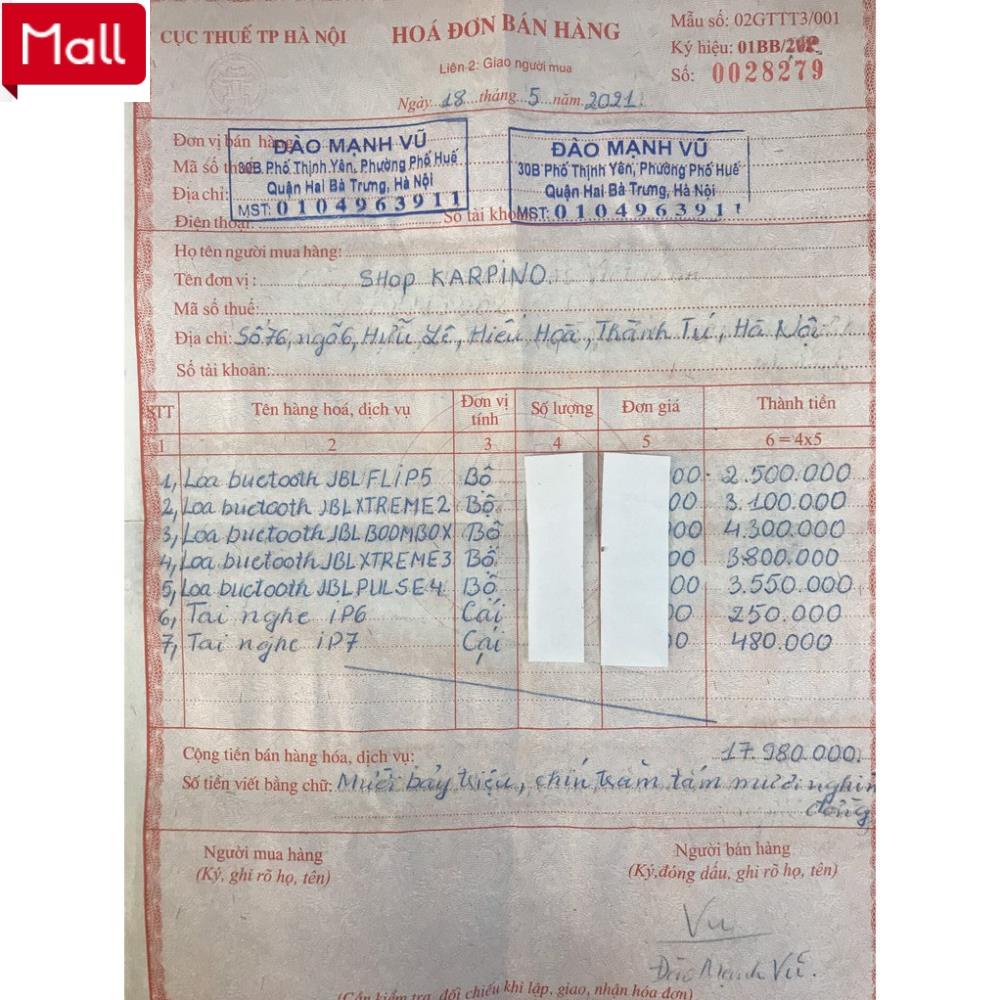 Mall
CỤC THUẾ TP HÀ NỘI
HOÁ ĐƠN BÁN HÀNG
Mẫu số: 02GTTT3/001
Liên 2: Giao người mua
Ký hiệu: 01BB/
Số: 0028279
Ngày 18 tháng 5 năm 2021
Đơn vị bán hàng
Mã số
Địa chỉ:
Điện thoại
Số tài
ĐÀO MẠNH VŨ
30B Phố Thịnh Yên, Phường Phố Huế
Quận Hai Bà Trưng, Hà Nội
MST: 0104963911
ĐÀO MẠNH VŨ
30B Phố Thịnh Yên, Phường Phố Huế
Quận Hai Bà Trưng, Hà Nội
MST: 0104963911
Họ tên người mua hàng:
Tên đơn vị: SHOP KARPINO
Mã số thuế:
Địa chỉ: Số 76, ngõ 6, Hữu Lê, Hiếu Hoà, Thành Tú, Hà Nội
Số tài khoản:
STT Tên hàng hoá, dịch vụ Đơn vị tính Số lượng Đơn giá Thành tiền
1 2 3 4 5 6 = 4x5
1, Loa buetooth JBL FLIP5 Bộ 00 2.500.000
2, Loa buetooth JBL XTREME2 Bộ 00 3.100.000
3, Loa buetooth JBL BOOMBOX Bộ 00 4.300.000
4, Loa buetooth JBL XTREME3 Bộ 00 3.800.000
5, Loa buetooth JBL PULSE4 Bộ 00 3.550.000
6, Tai nghe iP6 Cái 00 250.000
7, Tai nghe iP7 Cái 00 480.000
Cộng tiền bán hàng hóa, dịch vụ: 17.980.000
Số tiền viết bằng chữ: Mười bảy triệu, chín trăm tám mươi nghìn
đồng
Người mua hàng
(Ký, ghi rõ họ, tên)
Người bán hàng
(Ký, đóng dấu, ghi rõ họ, tên)
Vu
Đào Mạnh Vũ.
(Cần kiểm tra, đối chiếu khi lập, giao, nhận hóa đơn)